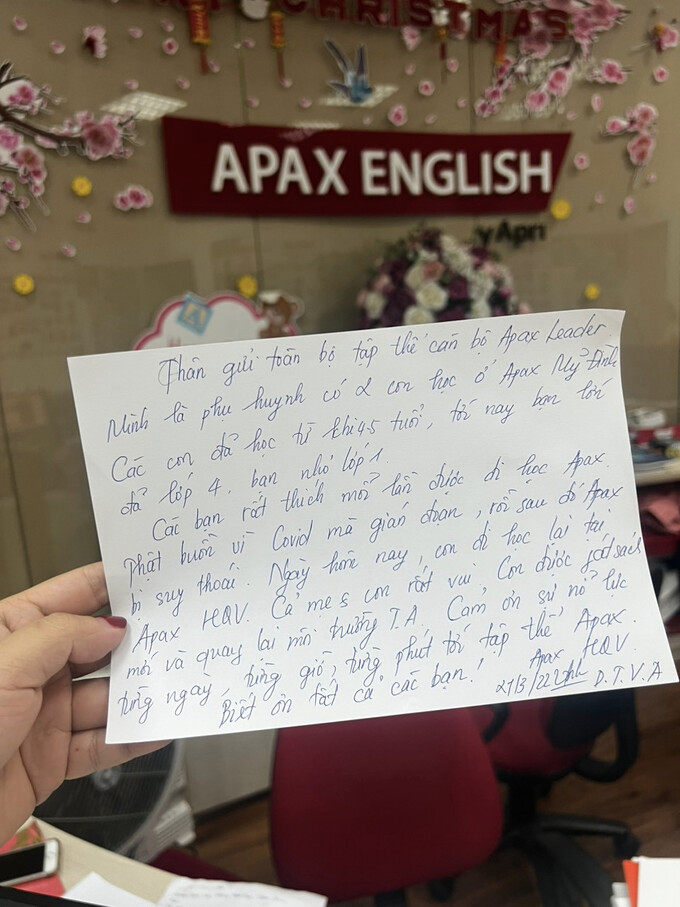 CHRISTMAS
APAX ENGLISH
by April
Thân gửi toàn bộ tập thể cán bộ Apax Leader.
Mình là phụ huynh có 2 con học ở Apax Mỹ Đình
Các con đã học từ khi 4-5 tuổi, tới nay bạn lớn
đã lớp 4, bạn nhỏ lớp 1.
Các bạn rất thích mỗi lần được đi học Apax.
Thật buồn vì Covid mà gián đoạn, rồi sau đó Apax
bị suy thoái. Ngày hôm nay, con đi học lại tại
Apax HQV. Cả mẹ & con rất vui, Con được phát sách
mới và quay lại môi trường T.A. Cảm ơn sự nỗ lực
từng ngày, từng giờ, từng phút tới tập thể Apax.
Biết ơn tất cả các bạn!
Apax HQV.
D.T.V.A